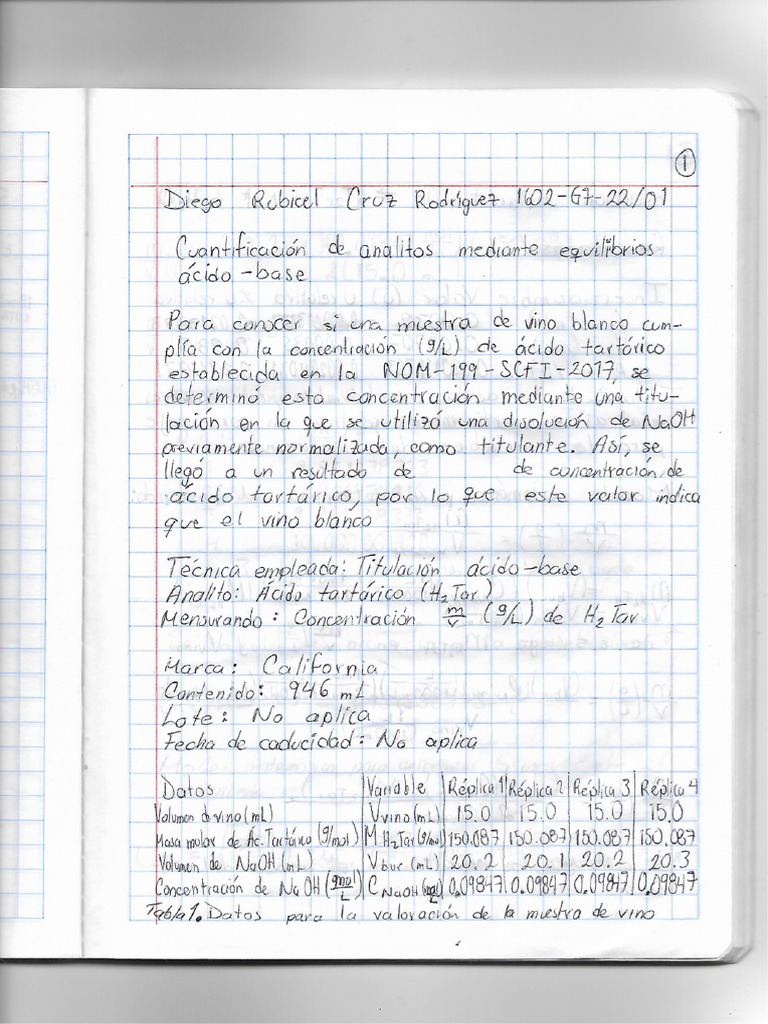 1
Diego Rubicel Cruz Rodríguez 1602-G7-22/01
Cuantificación de analitos mediante equilibrios
ácido-base
Para conocer si una muestra de vino blanco cum-
plía con la concentración (g/L) de ácido tartárico
establecida en la NOM-199-SCFI-2017, se
determinó esta concentración mediante una titu-
lación en la que se utilizó una disolución de NaOH
previamente normalizada, como titulante. Así, se
llegó a un resultado de de concentración de
ácido tartárico, por lo que este valor indica
que el vino blanco
Técnica empleada: Titulación ácido-base
Analito: Ácido tartárico (H₂Tar)
Mensurando: Concentración m/v (g/L) de H₂Tar
Marca: California
Contenido: 946 mL
Lote: No aplica
Fecha de caducidad: No aplica
Datos Variable Réplica 1 Réplica 2 Réplica 3 Réplica 4
Volumen de vino (mL) Vvino (mL) 15.0 15.0 15.0 15.0
Masa molar de Ác. Tartárico (g/mol) M H₂Tar (g/mol) 150.087 150.087 150.087 150.087
Volumen de NaOH (mL) Vbur (mL) 20.2 20.1 20.2 20.3
Concentración de NaOH (gmol/L) C NaOH 0.09847 0.09847 0.09847 0.09847
Tabla 1. Datos para la valoración de la muestra de vino